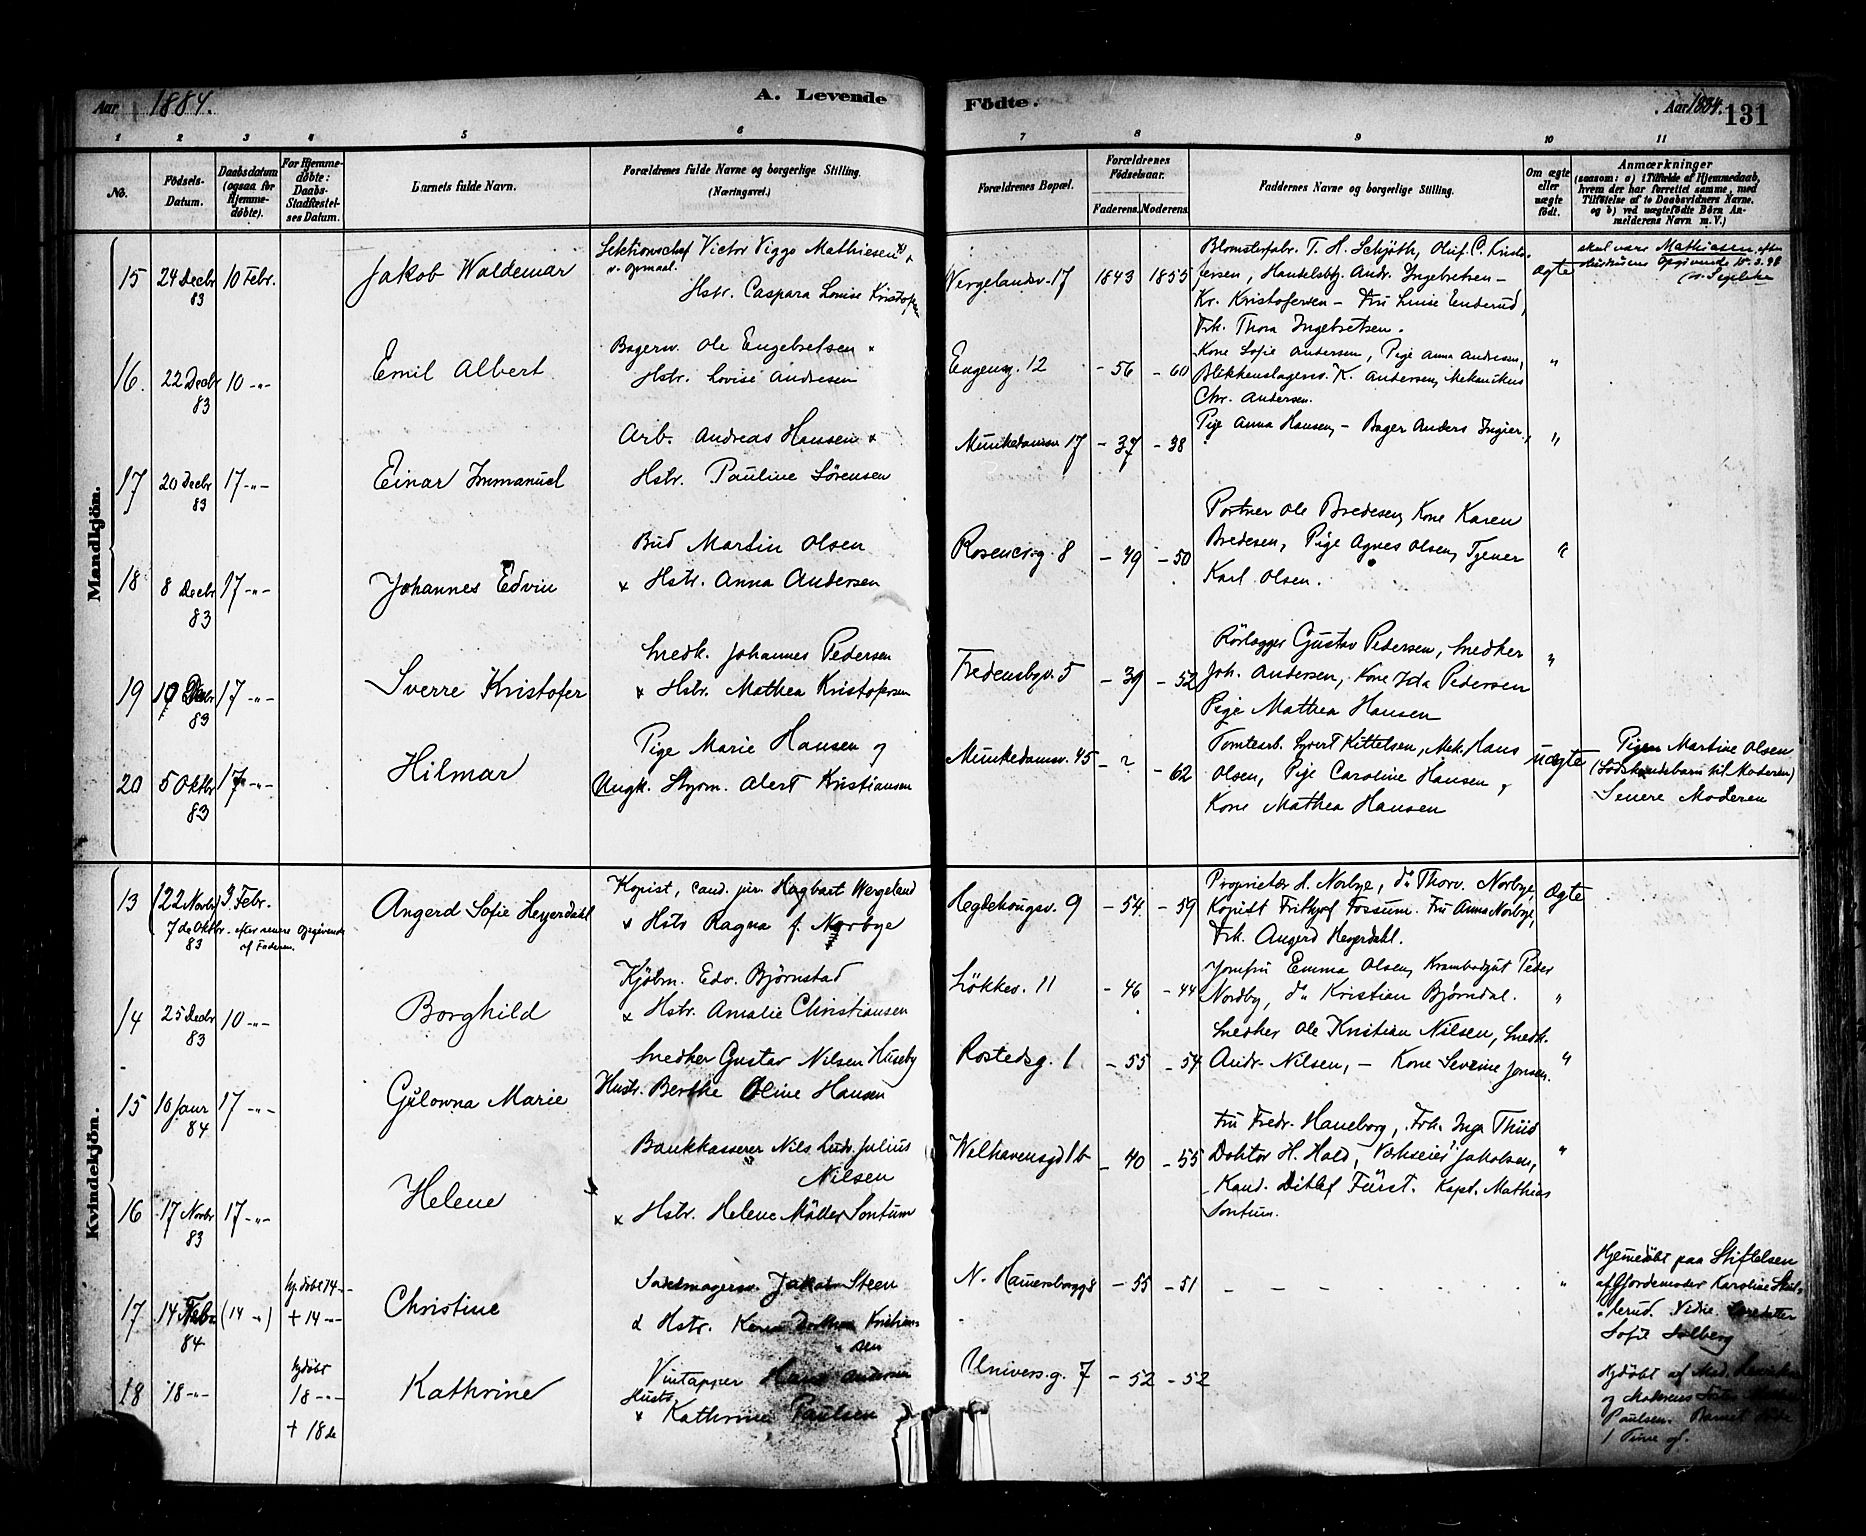 Aar 1884.
A. Levende
Födte.
Aar 1884.
131
1 2 3 4 5 6 7 8 9 10 11
No.
Födsels-
Datum.
Daabsdatum
(ogsaa for
Hjemme-
döbte).
For Hjemme-
döbte:
Daabs-
Stadfæstel-
ses Datum.
Barnets fulde Navn.
Forældrenes fulde Navne og borgerlige Stilling.
(Næringsvei.)
Forældrenes Bopæl.
Forældrenes
Födselsaar.
Faderens. Moderens.
Faddernes Navne og borgerlige Stilling.
Om ægte
eller
uægte
födt.
Anmærkninger
(saasom: a) i Tilfælde af Hjemmedaab,
hvem der har forrettet samme, med
Tilföielse af to Daabsvidners Navne,
og b) ved uægtefödte Börn An-
melderens Navn m. V.)
Mandkjön.
15
24 Decbr
83
10 Febr.
Jakob Waldemar
Sektionschef Victor Viggo Mathiesen
v. opmaal.
Hstr. Caspara Lovise Kristofersen
Wergelandsv. 17
1843
1855
Blomsterfabr. T. H. Schjøth, Oluf C. Kristo-
fersen, Handelsbtg. Andr. Ingebretsen –
Kr. Kristofersen – Fru Luise Enderud,
Frk. Thora Ingebretsen.
ægte
skal være Mathiasen efter
Opgivende 15.3.98
16.
22 Decbr
83
10 -"-
Emil Albert
Bagersv. Ole Engebretsen
Hstr. Lovise Andresen
Eugeng. 12
- 56
- 60
Kone Sofie Andersen, Pige Anna Andresen,
Blikkenslagersv. K. Andersen, Mekanikus
Chr. Andersen.
"
17
20 Decbr
83
17 -"-
Einar Immanuel
Arb. Andreas Hansen
Hstr. Pauline Sörensen
Munkedamsv. 17
- 37
- 38
Pige Anna Hansen, – Bager Anders Ingier.
"
18
8 Decbr
83
17 -"-
Johannes Edvin
Bud Martin Olsen
x Hstr. Anna Andersen
Rosencrg. 8
- 49
- 50
Portner Ole Bredesen, Kone Karen
Bredesen, Pige Agnes Olsen, Tjener
Karl Olsen.
"
19
19 Decbr
83
17 -"-
Sverre Kristofer
Snedk. Johannes Pedersen
x Hstr. Mathea Kristofersen
Fredensbgv. 5
- 39
- 52
Rörlægger Gustav Pedersen, Snedker
Joh. Andersen, Kone Ida Pedersen
Pige Mathea Hansen
"
20
5 Oktbr
83
17 -"-
Hilmar
Pige Marie Hansen og
Ungk. Styrm. Alert Kristiansen
Munkedamsv. 45
- ?
- 62
Tomtearb. Syvert Kittelsen, Mek. Hans
Olsen, Pige Caroline Hansen,
Kone Mathea Hansen
uægte
Pigen Martine Olsen
(Södskendebarn til Moderen)
Senere Moderen
Kvindekjön.
13
(22 Novbr)
7 de Oktbr. efter senere Opgivende
83 af Faderen.
3 Febr.
Angerd Sofie Heyerdahl
Kopist, cand. jur. Hagbart Wergeland
x Hstr Ragna f. Norbye
Hegdehougsv. 9
- 54
- 59
Proprietær H. Norbye, do Thorv. Norbye,
Kopist Frithjof Fossum. Fru Anna Norbye,
Frk. Angerd Heyerdahl.
Ægte
14
25 Decbr
83
10 -"-
Borghild
Kjöbm. Edv. Björnstad
x Hstr. Amalie Christiansen
Lökkev. 11
- 46
- 44
Jomfru Emma Olsen, Krambodgut Peder
Nordby, do Kristian Björndal.
"
15
10 Janr
84
17 -"-
Gulowna Marie
Snedker Gustav Nilsen Huseby
Hustr. Berthe Oline Hansen
Rostedsg. 1
- 55
- 54
Snedker Ole Kristian Nilsen, Snedk.
Andr. Nilsen, – Kone Severine Jensen.
"
16
17 Novbr
83
17 -"-
Helene
Bankkasserer Nils Ludv. Julius
Nilsen
x Hstr. Helene Möller Sontum
Welhavensgd 1 b
- 40
- 55
Fru Fredr. Haneborg, Frk. Inga Thiis
Doktor H. Hald, Vekseler Jakobsen,
Kand. Ditlef Fürst. Kapt. Mathias
Sontum.
"
17
14 Febr
84
(14 ")
hj. döbt 14 --
+ 14 -"-
Christine
Sadelmagersv. Jakob Steen
x Hstr. Karen Dorthea Kristian-
sen
N. Hammersborgg 8
- 55
- 51
"
Hjemmedöbt paa Stiftelsen
af Gjordemoder Karoline
Sofie Solberg
18
18 -"-
hjdöbt
18 -"-
+ 18 de
Kathrine
Vintapper Hans Andersen
Hustr
x Kathrine Paulsen
Univers.g. 7
- 52
- 52
Hjdöbt af Mad.
og Madrenes Söster
Paulsen. Barnet
1 Time gl.